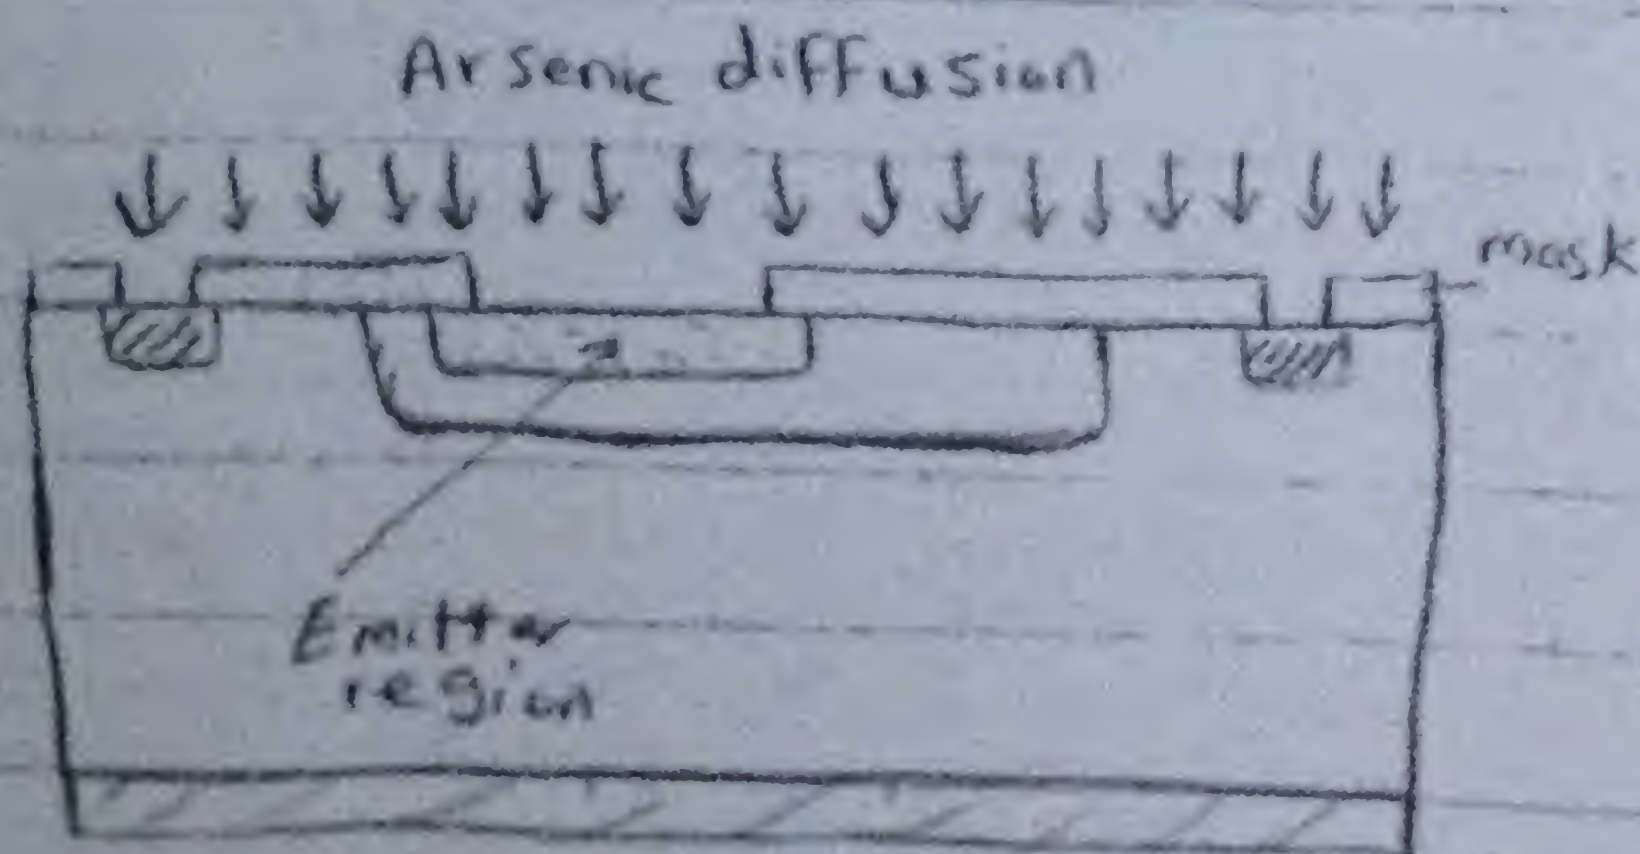 Arsenic diffusion
mask
Emitter
region